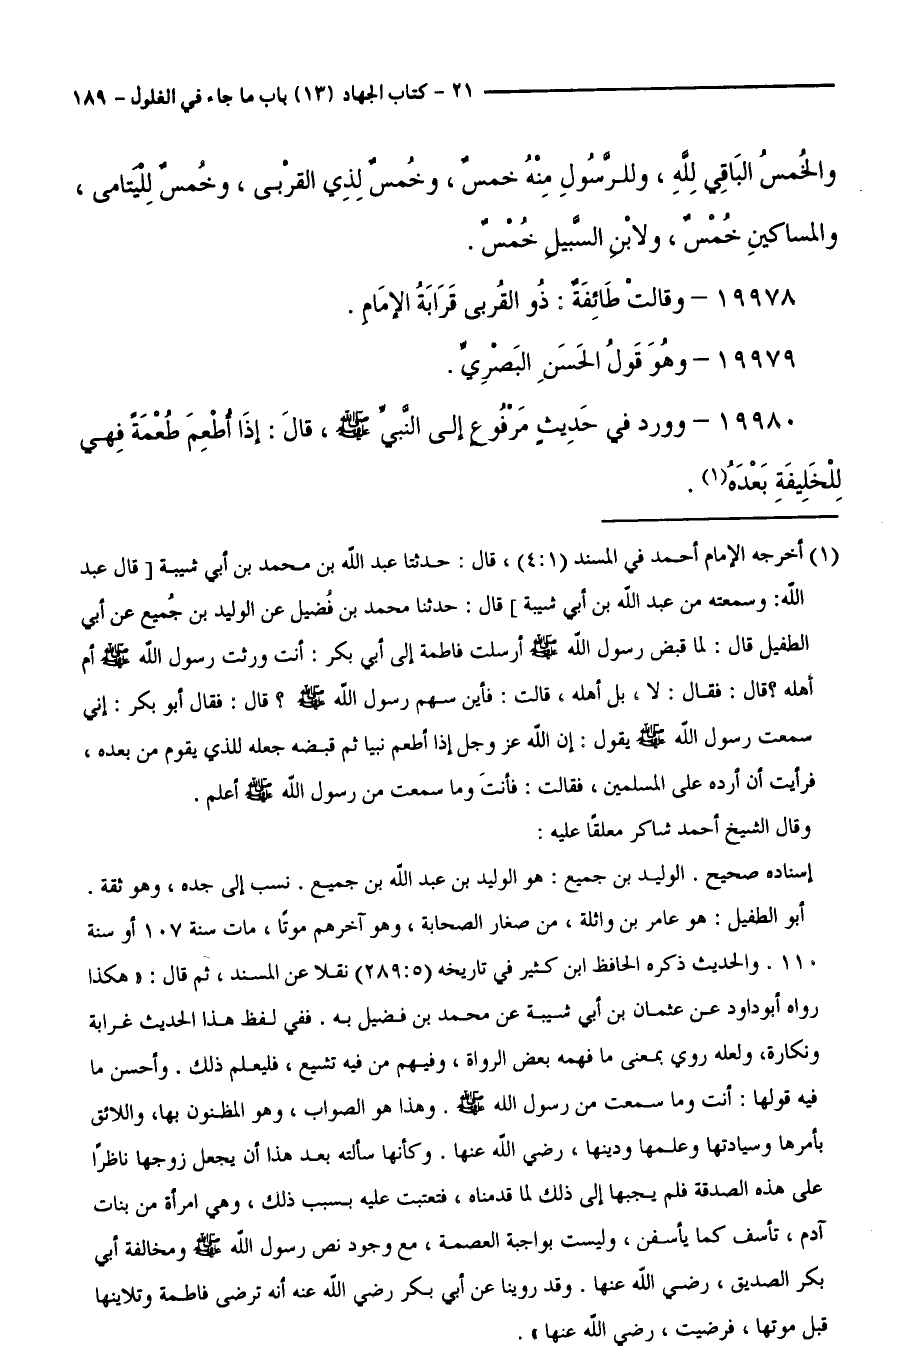 ٢١ - كتاب الجهاد (١٣) باب ما جاء في الغلول - ١٨٩
والخُمسُ البَاقِي لِلَّهِ ، وللرَّسُولِ مِنْهُ خمسٌ ، وخُمسٌ لِذِي القربْى ، وخُمسٌ لِلْيَتامى ،
والمساكينِ خُمْسٌ ، ولابْنِ السَّبيلِ خُمْسٌ .
١٩٩٧٨ - وقالتْ طَائِفَةٌ : ذُو القُربى قَرَابَةُ الإمَامِ .
١٩٩٧٩ - وهُوَ قَولُ الحَسَنِ البَصْرِيِّ .
١٩٩٨٠ - وورد في حَدِيثٍ مَرْفُوعٍ إلى النَّبيِّ ﷺ ، قالَ : إذَا أُطْعِمَ طُعْمَةً فهي
لِلْخَلِيفَةِ بَعْدَهُ(١) .
(١) أخرجه الإمام أحمد في المسند (٤:١) ، قال : حدثنا عبد اللّه بن محمد بن أبي شيبة [ قال عبد
اللّه: وسمعته من عبد اللّه بن أبي شيبة ] قال : حدثنا محمد بن فُضيل عن الوليد بن جُميع عن أبي
الطفيل قال : لما قبض رسول اللّه ﷺ أرسلت فاطمة إلى أبي بكر : أنت ورثت رسول اللّه ﷺ أم
أهله ؟قال : فقال : لا ، بل أهله ، قالت : فأين سهم رسول اللّه ﷺ ؟ قال : فقال أبو بكر : إني
سمعت رسول اللّه ﷺ يقول : إن اللّه عز وجل إذا أطعم نبيا ثم قبضه جعله للذي يقوم من بعده ،
فرأيت أن أرده على المسلمين ، فقالت : فأنتَ وما سمعت من رسول اللّه ﷺ أعلم .
وقال الشيخ أحمد شاكر معلقًا عليه :
إسناده صحيح . الوليد بن جميع : هو الوليد بن عبد اللّه بن جميع . نسب إلى جده ، وهو ثقة .
أبو الطفيل : هو عامر بن واثلة ، من صغار الصحابة ، وهو آخرهم موتًا ، مات سنة ١٠٧ أو سنة
١١٠ . والحديث ذكره الحافظ ابن كثير في تاريخه (٢٨٩:٥) نقلا عن المسند ، ثم قال : « هكذا
رواه أبوداود عن عثمان بن أبي شيبة عن محمد بن فضيل به . ففي لفظ هذا الحديث غرابة
ونكارة، ولعله روي بمعنى ما فهمه بعض الرواة ، وفيهم من فيه تشيع ، فليعلم ذلك . وأحسن ما
فيه قولها : أنت وما سمعت من رسول الله ﷺ . وهذا هو الصواب ، وهو المظنون بها، واللائق
بأمرها وسيادتها وعلمها ودينها ، رضي اللّه عنها . وكأنها سألته بعد هذا أن يجعل زوجها ناظرًا
على هذه الصدقة فلم يجبها إلى ذلك لما قدمناه ، فتعتبت عليه بسبب ذلك ، وهي امرأة من بنات
آدم ، تأسف كما يأسفن ، وليست بواجبة العصمة ، مع وجود نص رسول اللّه ﷺ ومخالفة أبي
بكر الصديق ، رضي اللّه عنها . وقد روينا عن أبي بكر رضي اللّه عنه أنه ترضى فاطمة وتلاينها
قبل موتها ، فرضيت ، رضي اللّه عنها » .